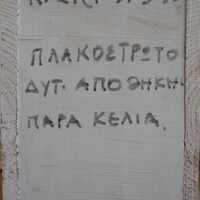 ΠΛΑΚΟΣΤΡΩΤΟ
ΔΥΤ. ΑΠΟΘΗΚΗ
ΠΑΡΑ ΚΕΛΙΑ.